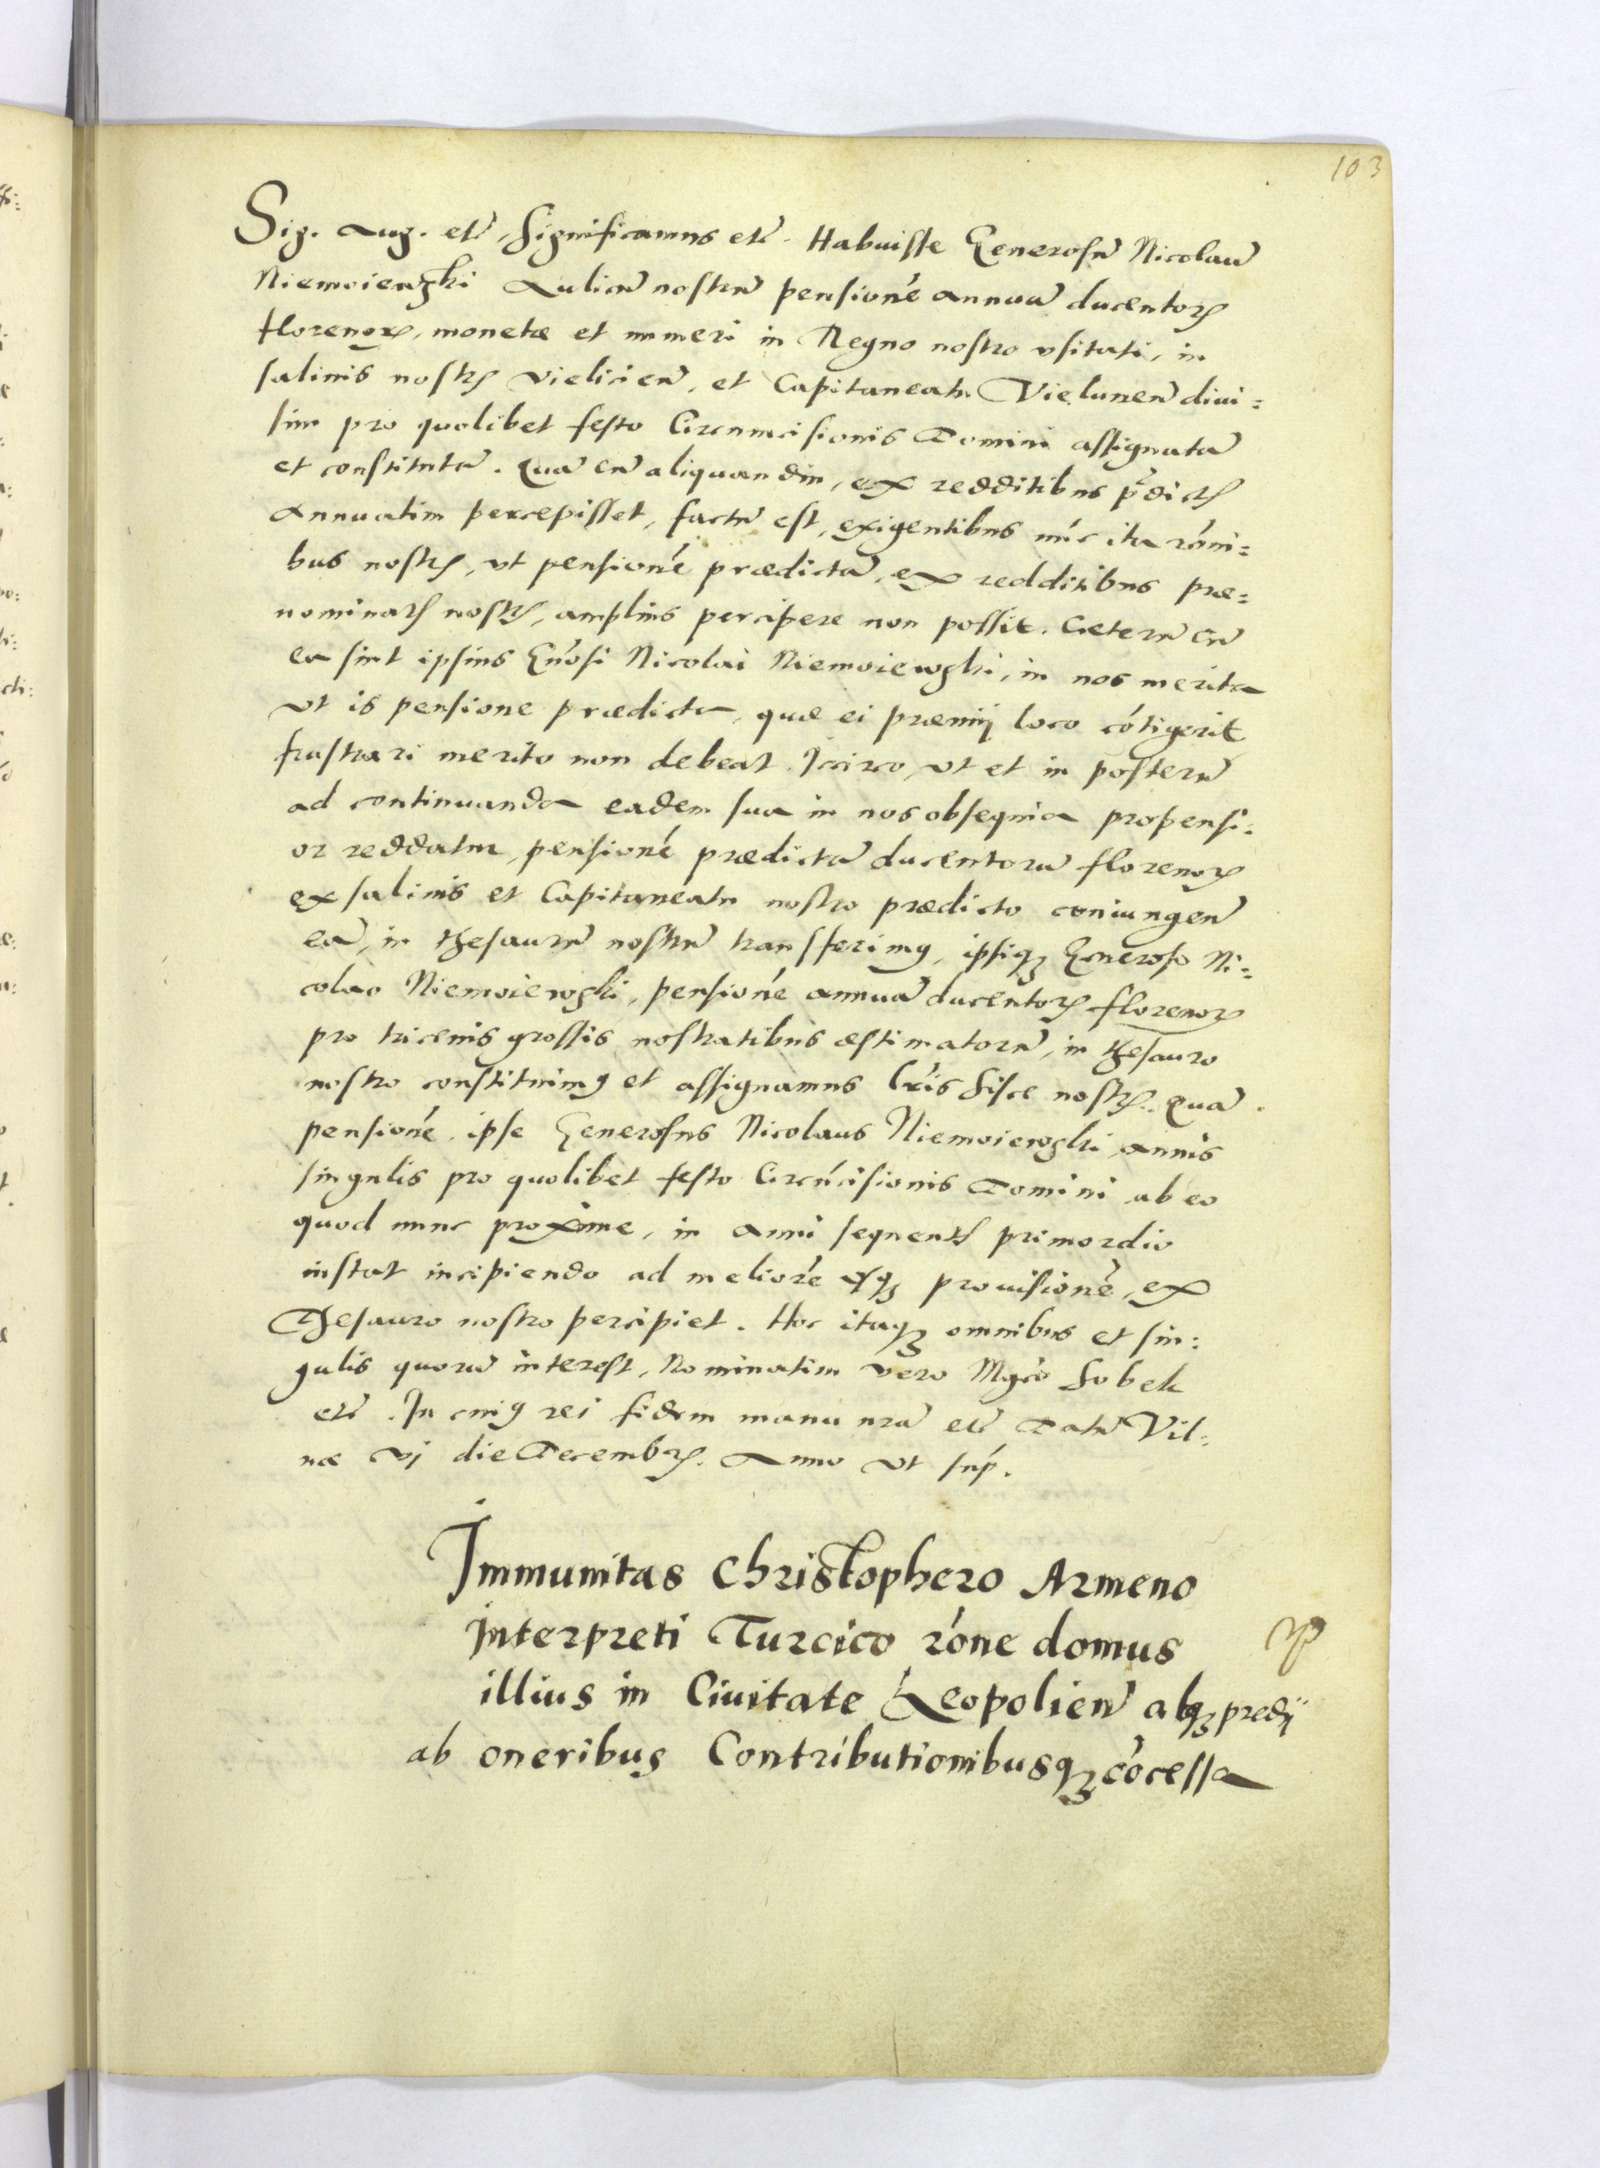 103
Sig. Aug. etc̃ Significamus etc̃. Habuisse Generosũ Nicolaũ
Niemoiewski Aulicũ nostrũ pensionẽ annuã ducentorꝝ
florenorꝝ, monetæ et numeri in Regno nostro vsitati, in
salinis nostrꝭ Vieliciеñ, et Capitaneatu Vieluneñ diui=
sim pro quolibet festo Circumcisionis Domini assignatã
et constitutã. Quã cũ aliquandiu, ex redditibus p̃dictꝭ
Annuatim percepisset, factũ est, exigentibus nũc ita rõni=
bus nostrꝭ, vt pensionẽ prædictã, ex redditibus præ=
nominatꝭ nostrꝭ, amplius percipere non possit. Cæterũ cũ
ea sint ipsius Gñosi Nicolai Niemoiewski, in nos merita
vt is pensione prædicta, quæ ei præmij loco cõtigerit
frustrari merito non debeat. Iccirco vt et in posterũ
ad continuanda eadem sua in nos obsequia propensi=
or reddatur, pensionẽ prædictã ducentorũ florenorꝝ
ex salinis et Capitaneatu nostro prædicto coniungeñ
eã, in thesaurũ nostrũ transferimꝰ, ipsiqꝫ Generoso Ni=
colao Niemoiewski, pensionẽ annuã ducentorꝝ florenorꝝ
pro tricenis grossis nostratibus æstimatorũ, in thesauro
nostro constituimꝰ et assignamus lr̃is hisce nostrꝭ. Quã
pensionẽ, ipse Generosus Nicolaus Niemoiewski annis
singulis pro quolibet festo Circũcisionis Domini ab eo
quod nunc proxime, in anni sequentꝭ primordio
instat incipiendo ad meliorẽ vsqꝫ prouisionẽ, ex
Thesauro nostro percipiet. Hoc itaqꝫ omnibus et sin=
gulis quorũ interest, Nominatim vero Mgc̃o Sobek
etc̃. In cuiꝰ rei fidem manu nrã etc̃ Datũ Vil=
næ vj die Decembrꝭ. Anno vt sup̃.
Immunitas Christophero Armeno
Interpreti Turcico rõne domus
illius in Ciuitate Leopolieñ abqꝫ predij
ab oneribus Contributionibusqꝫ cõcessa